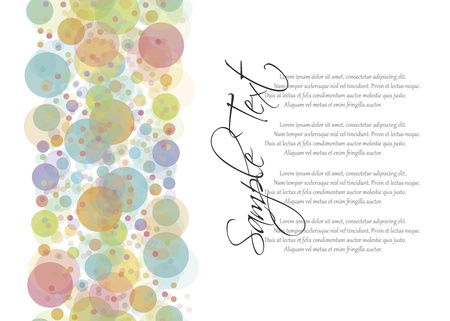 Sample Text
Lorem ipsum dolor sit amet, consectetur adipiscing elit.
Nam tempor scelerisque nisl vel tincidunt. Proin et lectus.
Duis at lectus et felis condimentum auctor molestie quis justo.
Aliquam vel metus et enim fringilla auctor.
Lorem ipsum dolor sit amet, consectetur adipiscing elit.
Nam tempor scelerisque nisl vel tincidunt. Proin et lectus.
Duis at lectus et felis condimentum auctor molestie quis justo.
Aliquam vel metus et enim fringilla auctor.
Lorem ipsum dolor sit amet, consectetur adipiscing elit.
Nam tempor scelerisque nisl vel tincidunt. Proin et lectus.
Duis at lectus et felis condimentum auctor molestie quis justo.
Aliquam vel metus et enim fringilla auctor.
Lorem ipsum dolor sit amet, consectetur adipiscing elit.
Nam tempor scelerisque nisl vel tincidunt. Proin et lectus.
Duis at lectus et felis condimentum auctor molestie quis justo.
Aliquam vel metus et enim fringilla auctor.